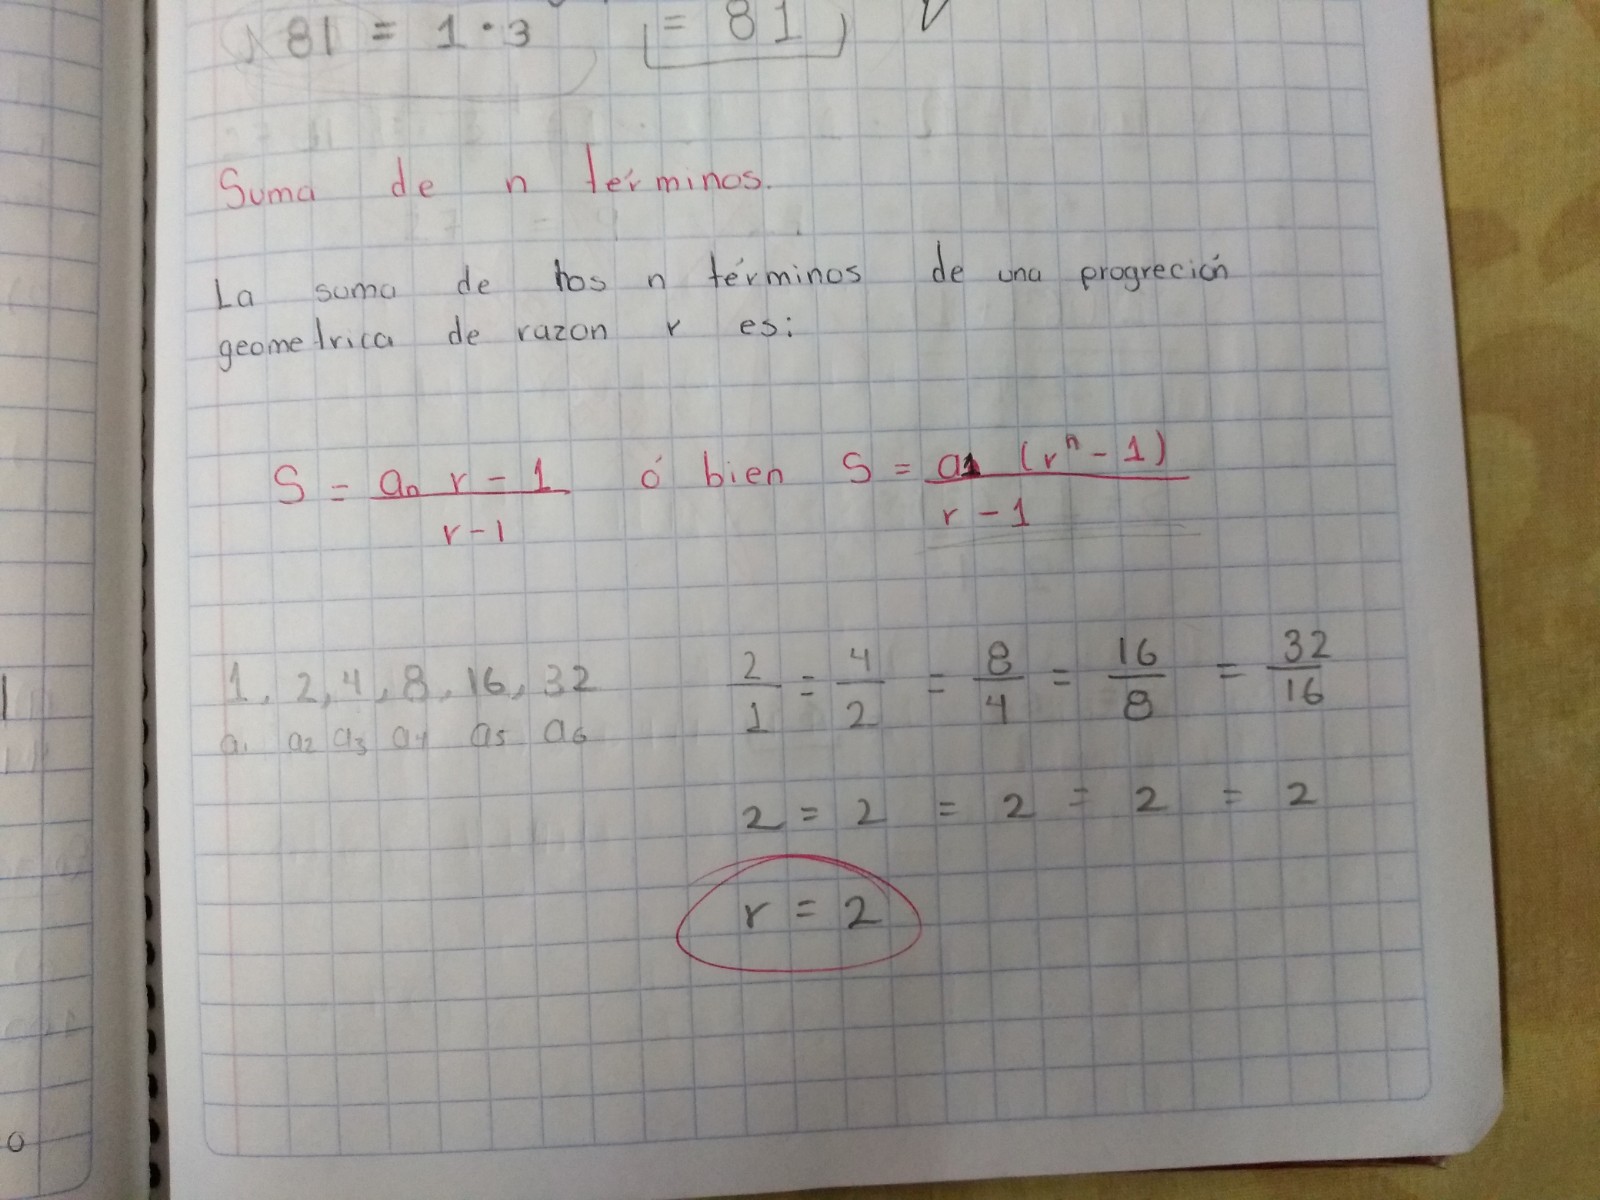 81 = 1 · 3 = 81
Suma de n términos.
La suma de los n términos de una progreción
geometrica de razon r es:
S = an r - 1 / r - 1 ó bien S = a1 (rⁿ - 1) / r - 1
1, 2, 4, 8, 16, 32 2/1 = 4/2 = 8/4 = 16/8 = 32/16
a1 a2 a3 a4 a5 a6
2 = 2 = 2 = 2 = 2
r = 2